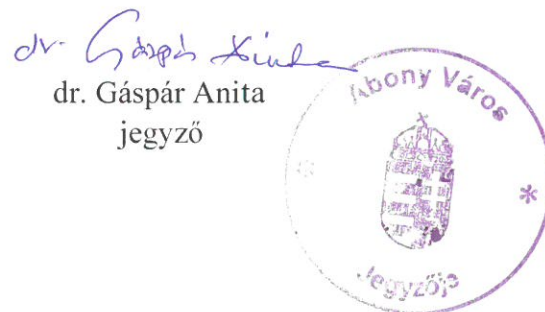 dr. Gáspár Anita
dr. Gáspár Anita
jegyző
Abony Város
Jegyzője